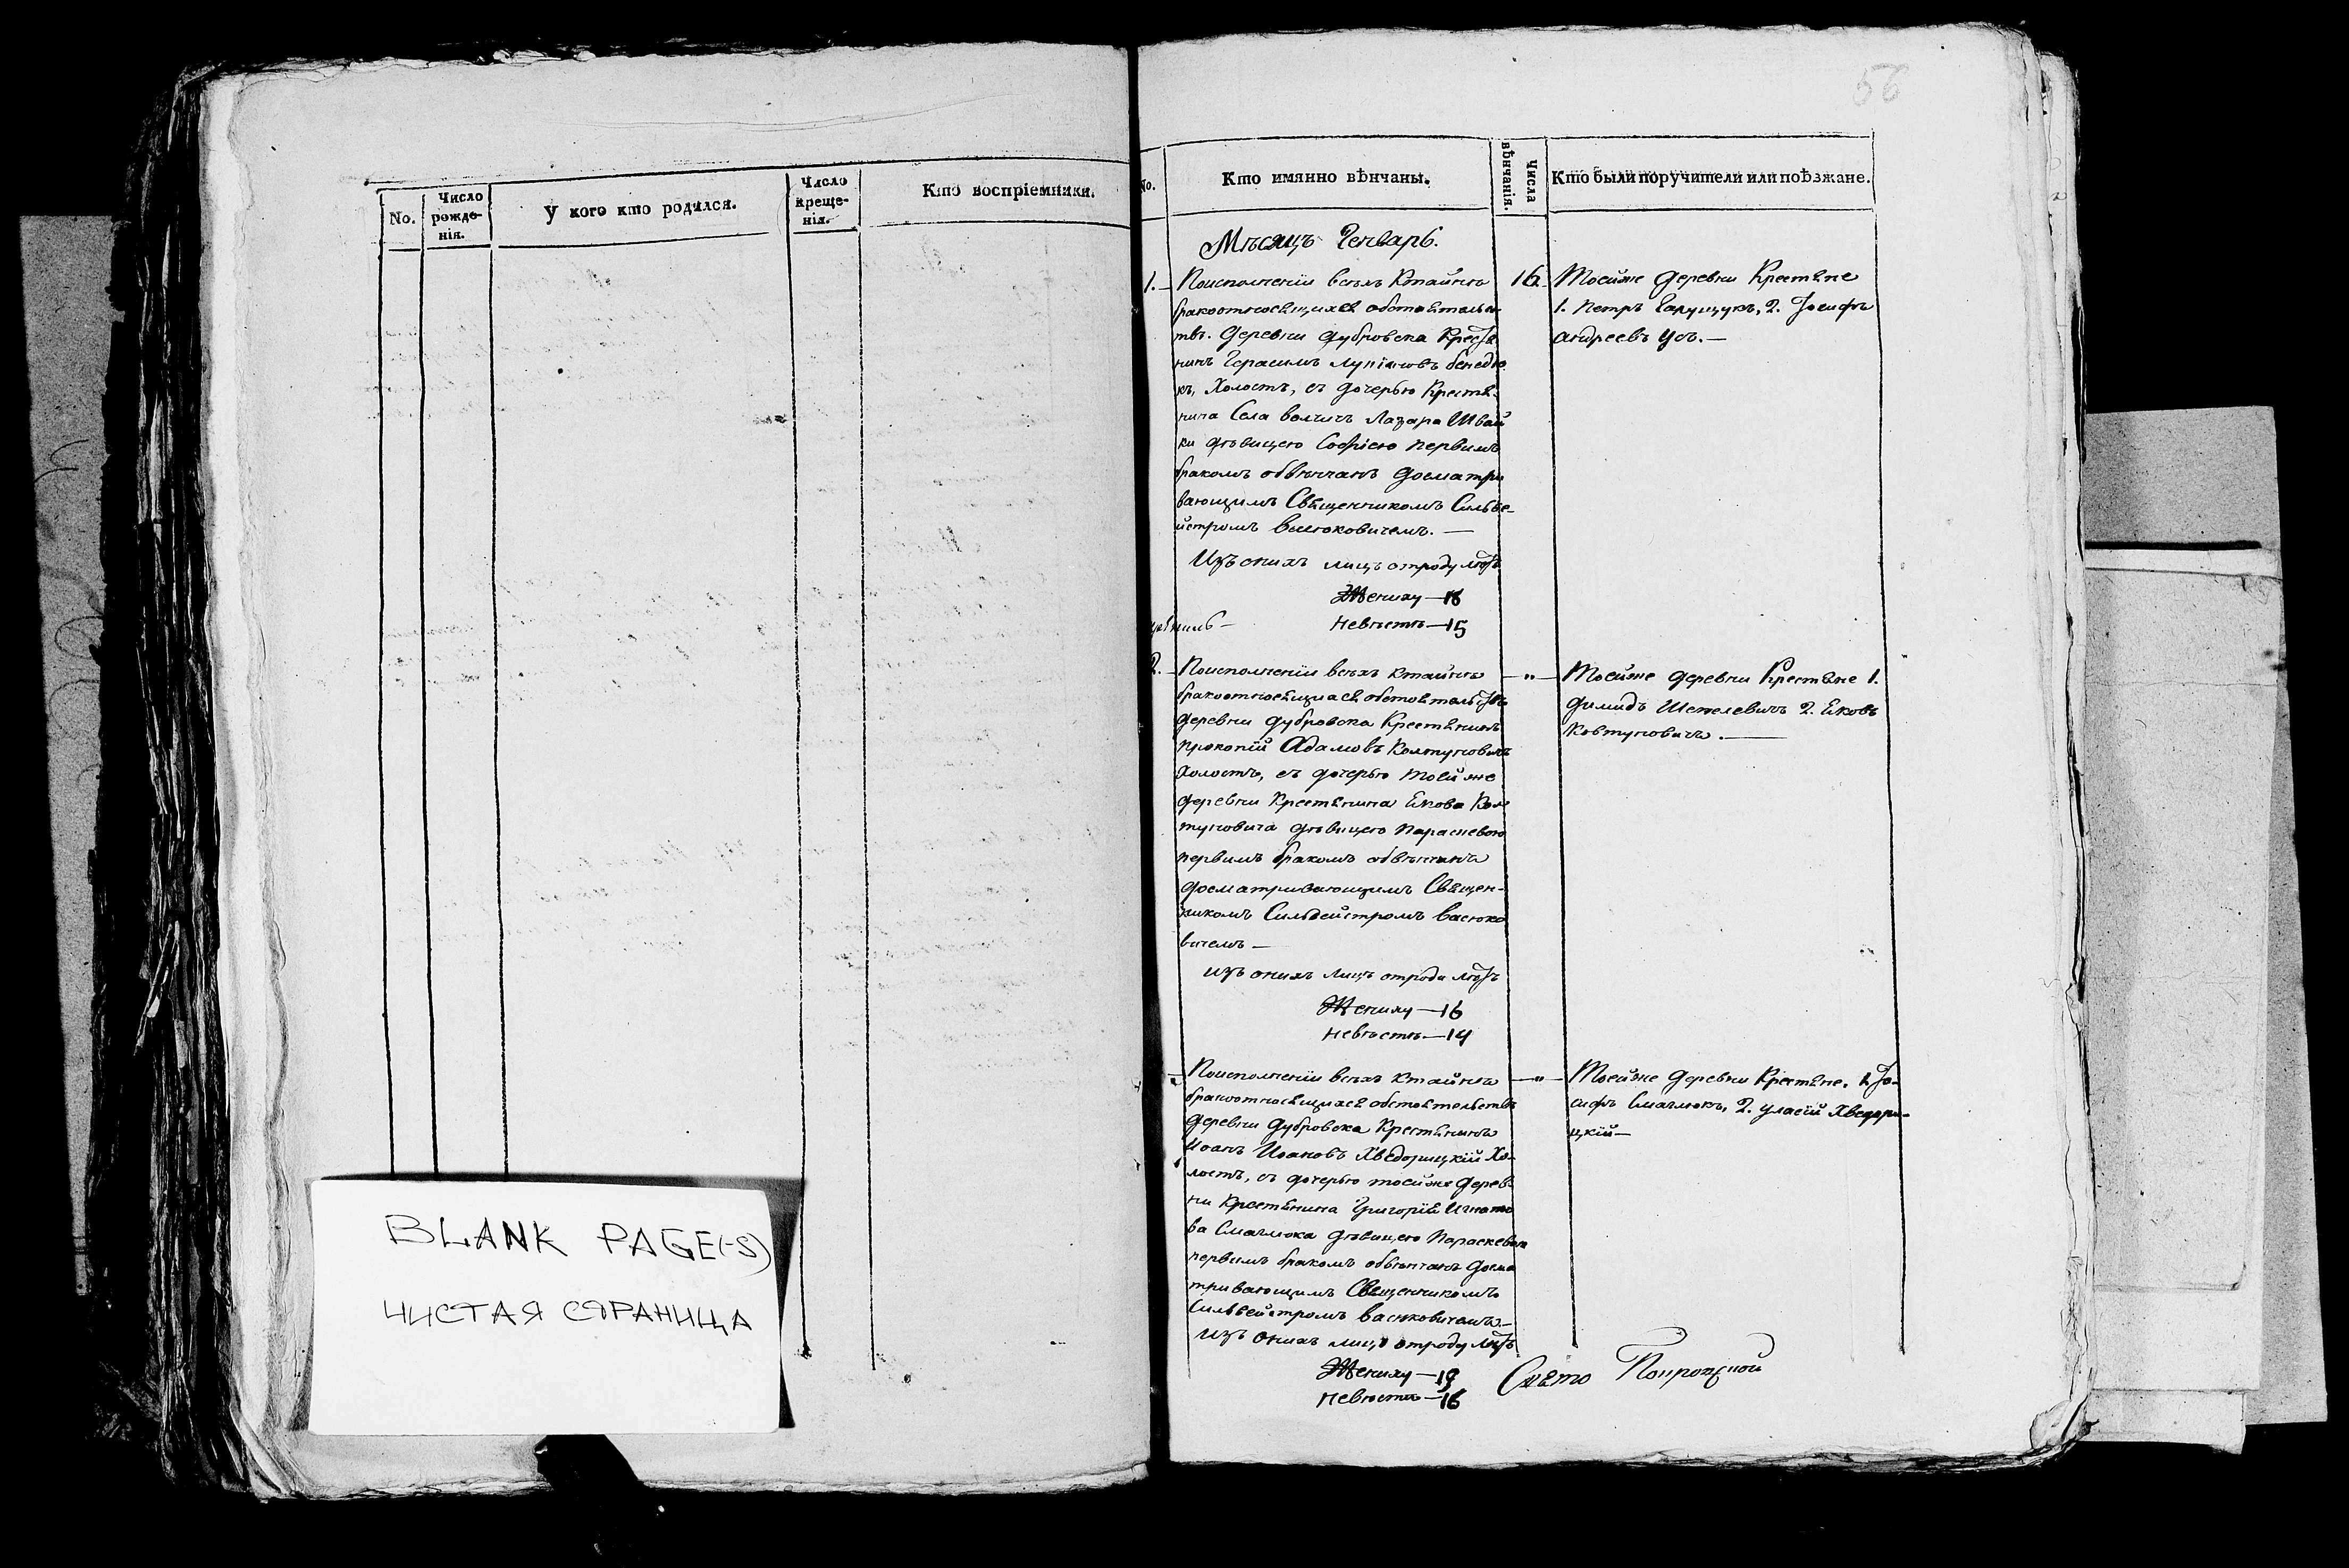 No.
Число рожде-нія.
У кого кто родился.
Число креще-нія.
Кто воспріемники.
BLANK PAGE(-S)
ЧИСТАЯ СТРАНИЦА
56
No.
Кто имянно вѣнчаны.
Числа вѣнчанія.
Кто были поручители или поѣзжане.
Мѣсяцъ Генварь.
1. Поисполненіи всѣхъ ктайнѣ
бракоотносящихся обстоятельс
твъ. деревни дубровска Кресть
нинъ Герасимъ
къ, Холостъ, съ дочерью Крестя-
нина Села волчичъ Лазара Швай
ки дѣвицею Софіею первымъ
бракомъ обвѣнчанъ досматри
вающимъ Священникомъ Сильве-
йстромъ васюковичемъ. —
Изъ онихъ лицъ отроду лѣтъ
Жениху — 18
Невѣстѣ — 15
16. Тоейже деревни Крестяне
1. Петръ 2. Іосифъ
андреевъ Усъ. —
2. Поисполненіи всѣхъ ктайнѣ
бракоотносящихся обстоятельствъ
деревни дубровска Крестянинъ
прокопій Адамовъ Колтуновичъ
Холостъ, съ дочерью тоейже
деревни Крестянина Якова Кол
туновича дѣвицею Параскевою
первимъ бракомъ обвѣнчанъ
досматривающимъ Священ-
никомъ Сильвейстромъ васюко
вичемъ —
изъ онихъ лицъ отроду лѣтъ
Жениху — 16
невѣстѣ — 14
— " — Тоейже деревни Крестяне 1.
2. Яковъ
Ковтуновичъ. —
Поисполненіи всѣхъ ктайнѣ
бракоотносящихся обстоятельствъ
деревни дубровска Крестянинъ
Иоанъ Иоановъ Хведорицкій Хо-
лостъ, съ дочерью тоейже дерев-
ни Крестянина Григорія Игнато
ва Смаглюка дѣвицею Параскевою
первимъ бракомъ обвѣнчанъ досма
тривающимъ Священникомъ
Сильвейстромъ васюковичемъ. —
Изъ онихъ лицъ отроду лѣтъ
Жениху — 19
Невѣстѣ — 16
— " — Тоейже деревни Крестяне. 1. Іо-
сифъ Смаглюкъ, 2. уласій Хведори-
цкій —